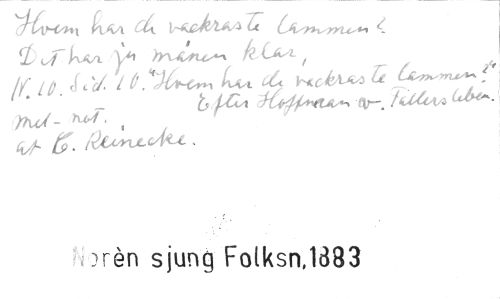 Hvem har de vackraste lammen?
Det har ju månen klar,
N. 10. Sid. 10. "Hvem har de vackraste lammen?"
Efter Hoffman v. Fallersleben.
mel - not.
af C. Reinecke.
Norèn sjung Folksn,1883